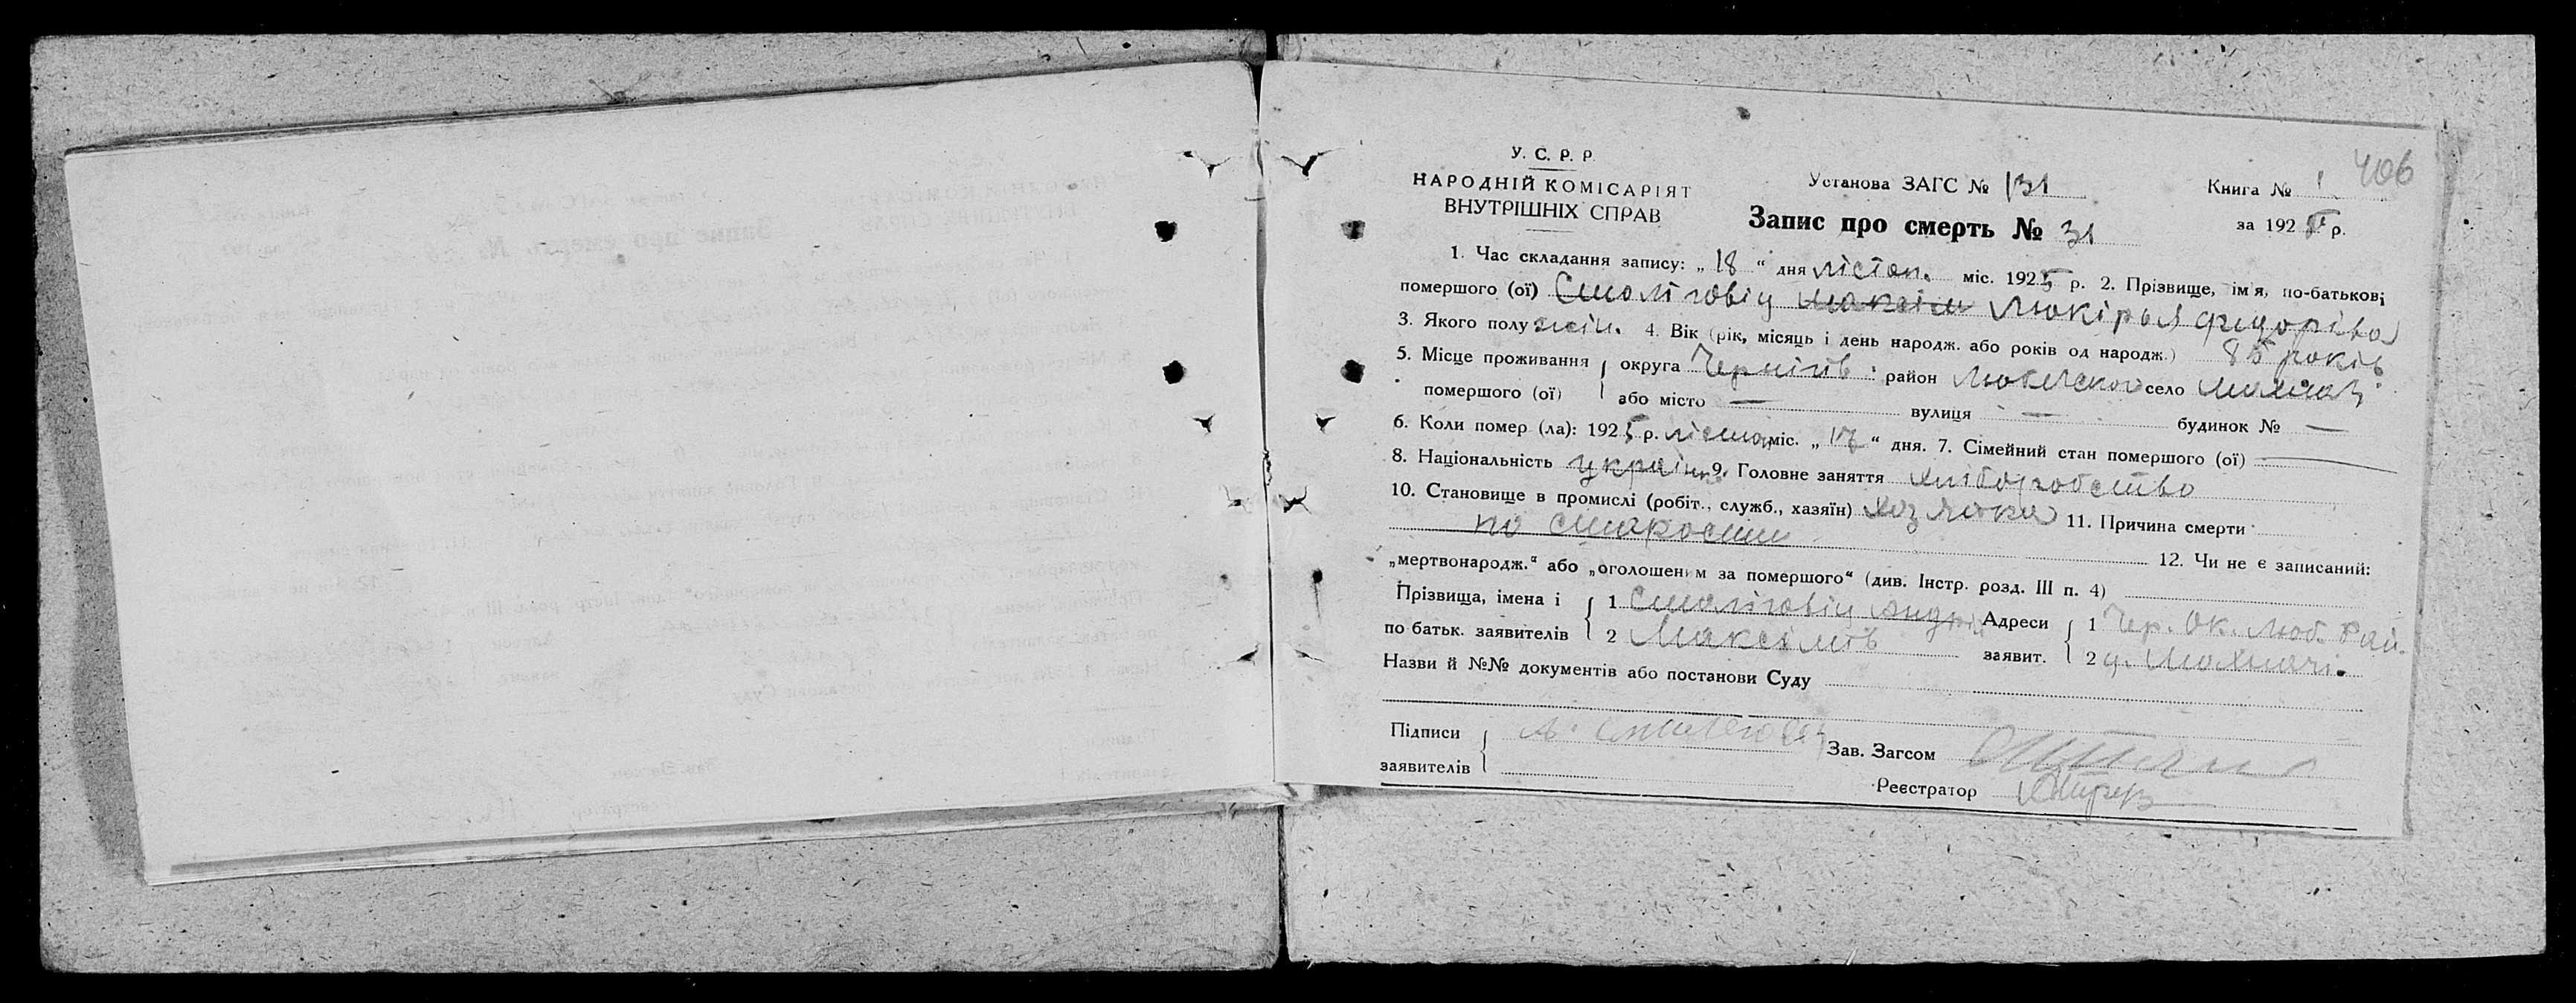 406
У. С. Р. Р.
НАРОДНІЙ КОМІСАРІЯТ
ВНУТРІШНІХ СПРАВ
Установа ЗАГС № 131
Книга № 1
Запис про смерть № 31
за 1925 р.
1. Час складання запису: „ 18 “ дня лістоп. міс. 1925 р. 2. Прізвище, ім'я, по-батькові
помершого (ої) Смоліговіц Максім Люкірья Федорівна
3. Якого полу жін. 4. Вік (рік, місяць і день народж. або років од народж.) 85 років
5. Місце проживання округа Чернігів. район Любецького село Мохначі
помершого (ої) або місто — вулиця — будинок № —
6. Коли помер (ла): 1925 р. лістоп. міс. „ 17 “ дня. 7. Сімейний стан помершого (ої) —
8. Національність україн. 9. Головне заняття хліборобство
10. Становище в промислі (робіт., служб., хазяїн) хозяйка 11. Причина смерти
по старости 12. Чи не є записаний:
„мертвонародж.“ або „оголошеним за померш​ого“ (див. Інстр. розд. III п. 4)
Прізвища, імена і 1 Смоліговіц Андрій Адреси 1 Чер. Ок. Люб. Рай.
по батьк. заявителів 2 Максімів заявит. 2 д. Мохначі.
Назви й №№ документів або постанови Суду
Підписи А.
Зав. Загсом
заявителів
Реєстратор